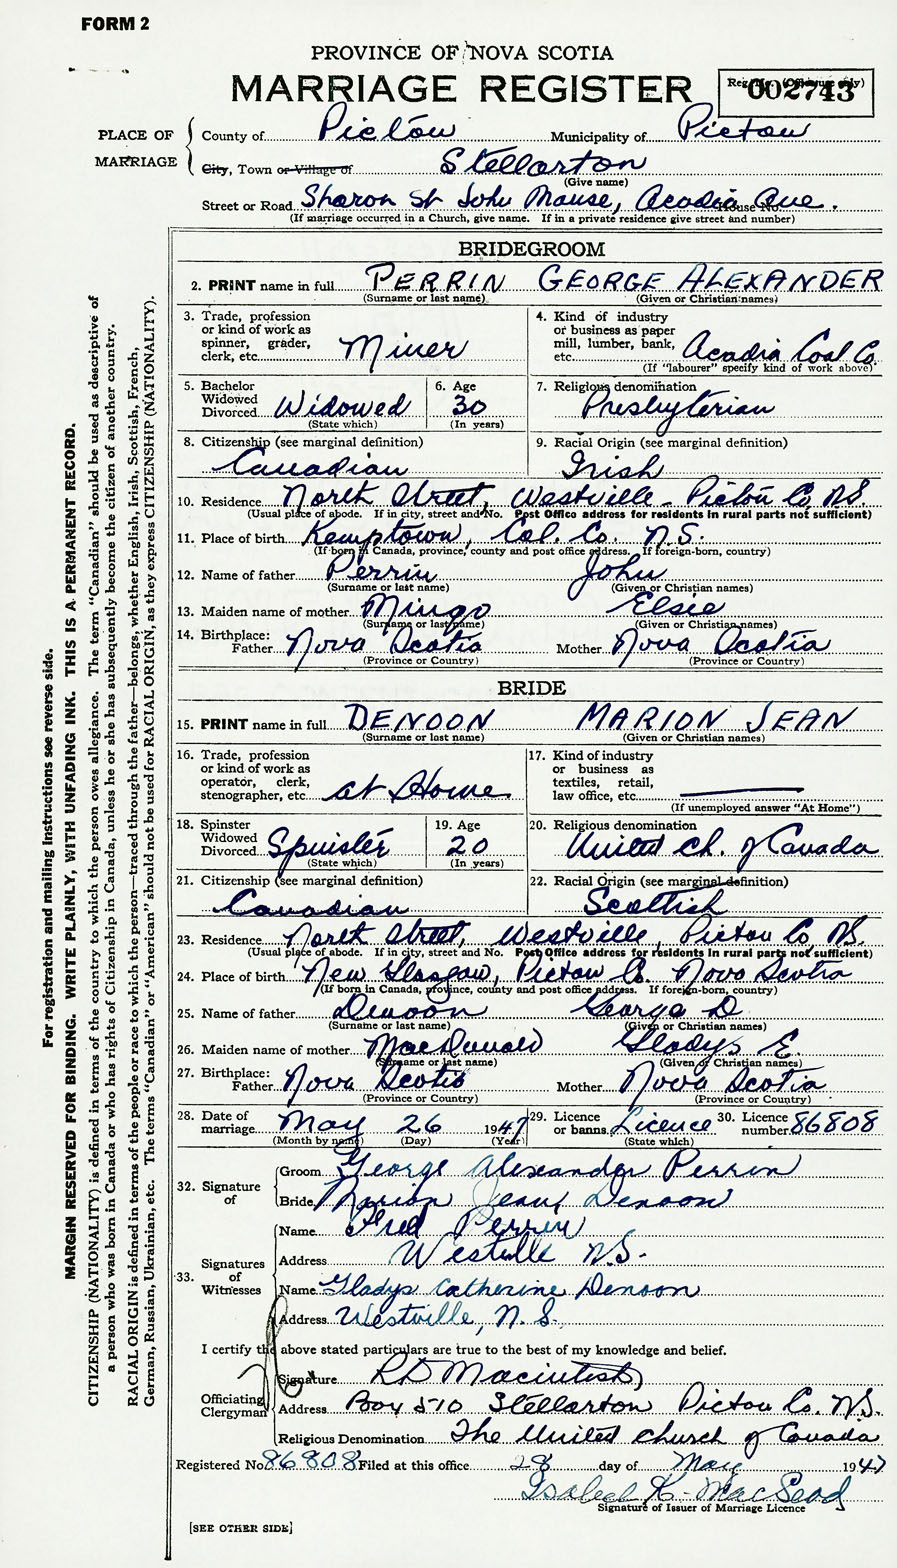 FORM 2
PROVINCE OF NOVA SCOTIA
MARRIAGE REGISTER
Reg. No. (Office use only)
002743
PLACE OF MARRIAGE
County of Pictou Municipality of Pictou
City, Town or Village of Stellarton
(Give name)
Street or Road Sharon St John Manse, Acadia Ave. House No.
(If marriage occurred in a Church, give name. If in a private residence give street and number)
BRIDEGROOM
2. PRINT name in full PERRIN GEORGE ALEXANDER
(Surname or last name) (Given or Christian names)
3. Trade, profession or kind of work as spinner, grader, clerk, etc. Miner
4. Kind of industry or business as paper mill, lumber, bank, etc. Acadia Coal Co.
(If "labourer" specify kind of work above)
5. Bachelor Widowed Divorced Widowed
(State which)
6. Age 30
(In years)
7. Religious denomination Presbyterian
8. Citizenship (see marginal definition) Canadian
9. Racial Origin (see marginal definition) Irish
10. Residence North Street, Westville - Pictou Co. N.S.
(Usual place of abode. If in city, street and No. Post Office address for residents in rural parts not sufficient)
11. Place of birth Kemptown, Col. Co. N.S.
(If born in Canada, province, county and post office address. If foreign-born, country)
12. Name of father Perrin John
(Surname or last name) (Given or Christian names)
13. Maiden name of mother Mingo Elsie
(Surname or last name) (Given or Christian names)
14. Birthplace: Father Nova Scotia Mother Nova Scotia
(Province or Country) (Province or Country)
BRIDE
15. PRINT name in full DENOON MARION JEAN
(Surname or last name) (Given or Christian names)
16. Trade, profession or kind of work as operator, clerk, stenographer, etc. at Home
17. Kind of industry or business as textiles, retail, law office, etc.
(If unemployed answer "At Home")
18. Spinster Widowed Divorced Spinster
(State which)
19. Age 20
(In years)
20. Religious denomination United Ch. of Canada
21. Citizenship (see marginal definition) Canadian
22. Racial Origin (see marginal definition) Scottish
23. Residence North Street, Westville, Pictou Co. N.S.
(Usual place of abode. If in city, street and No. Post Office address for residents in rural parts not sufficient)
24. Place of birth New Glasgow, Pictou Co. Nova Scotia
(If born in Canada, province, county and post office address. If foreign-born, country)
25. Name of father Denoon George D
(Surname or last name) (Given or Christian names)
26. Maiden name of mother MacDonald Gladys E.
(Surname or last name) (Given or Christian names)
27. Birthplace: Father Nova Scotia Mother Nova Scotia
(Province or Country) (Province or Country)
28. Date of marriage May 26 1947
(Month by name) (Day) (Year)
29. Licence or banns Licence
(State which)
30. Licence number 86808
32. Signature of
Groom George Alexander Perrin
Bride Marion Jean Denoon
33. Signatures of Witnesses
Name Fred Perrin
Address Westville N.S.
Name Gladys Catherine Denoon
Address Westville, N.S.
I certify the above stated particulars are true to the best of my knowledge and belief.
Officiating Clergyman
Signature R D Macintosh
Address Box 510 Stellarton Pictou Co. N.S.
Religious Denomination The United Church of Canada
Registered No 86808 Filed at this office 28 day of May 1947
Isabel K. MacLeod
Signature of Issuer of Marriage Licence
[SEE OTHER SIDE]
For registration and mailing instructions see reverse side.
MARGIN RESERVED FOR BINDING. WRITE PLAINLY, WITH UNFADING INK. THIS IS A PERMANENT RECORD.
CITIZENSHIP (NATIONALITY) is defined in terms of the country to which the person owes allegiance. The term "Canadian" should be used as descriptive of
a person who was born in Canada or who has rights of Citizenship in Canada, unless he or she has subsequently become the citizen of another country.
RACIAL ORIGIN is defined in terms of the people or race to which the person—traced through the father—belongs, whether English, Irish, Scottish, French,
German, Russian, Ukrainian, etc. The terms "Canadian" or "American" should not be used for RACIAL ORIGIN, as they express CITIZENSHIP (NATIONALITY).